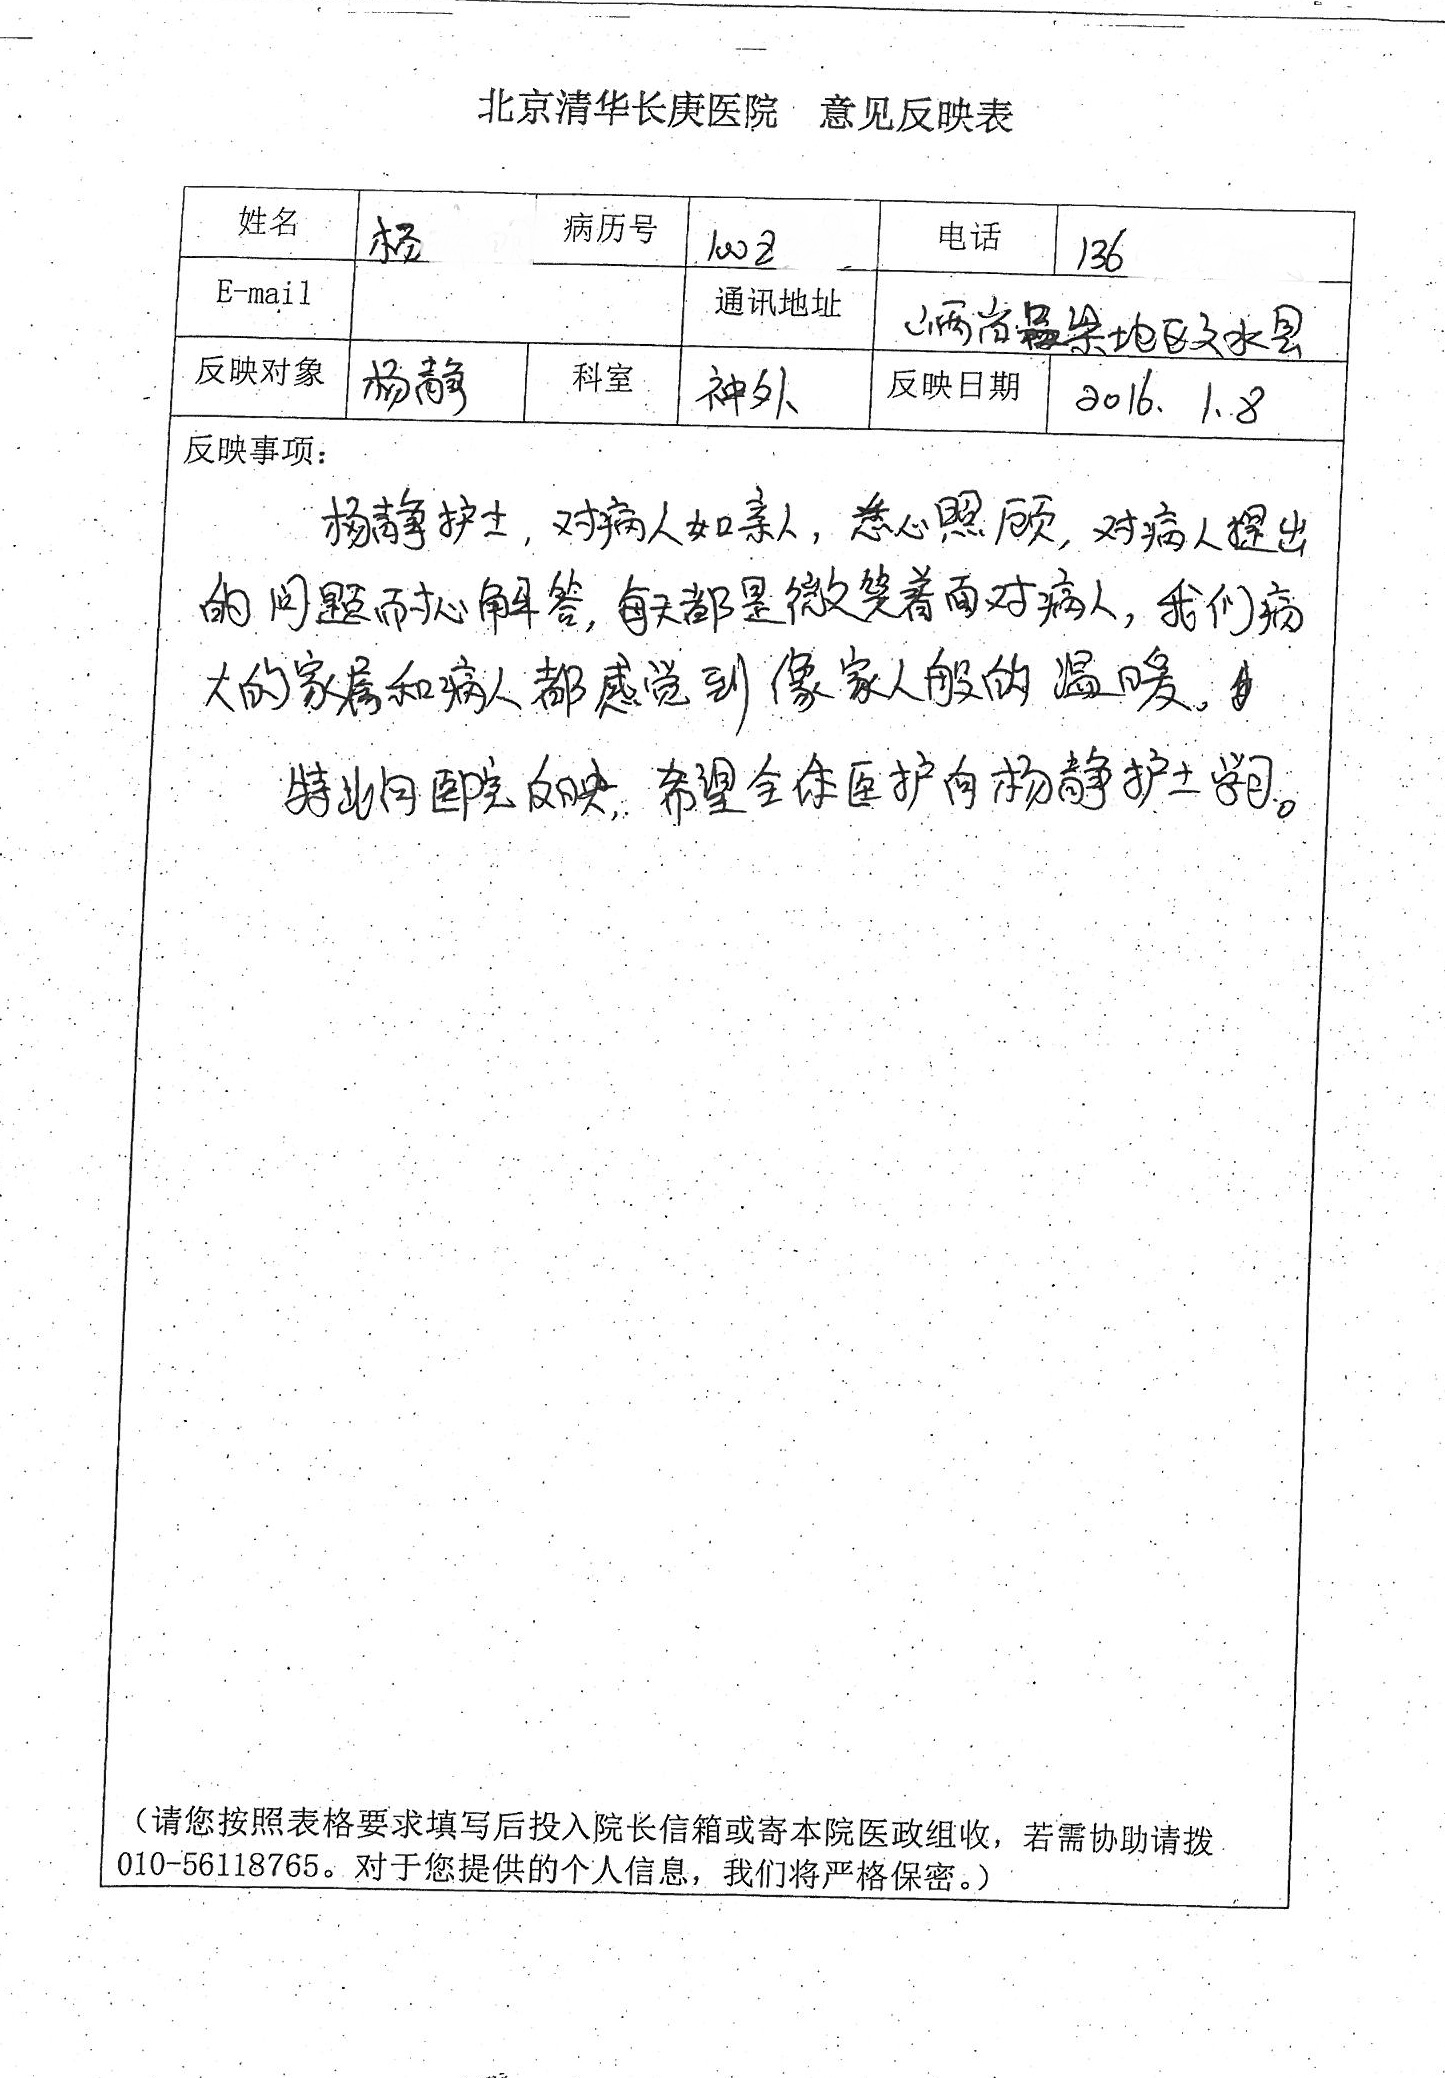 北京清华长庚医院 意见反映表
姓名 杨 病历号 1002 电话 136
E-mail 通讯地址 山西省吕梁地区文水县
反映对象 杨静 科室 神外 反映日期 2016.1.8
反映事项:
杨静护士,对病人如亲人,悉心照顾,对病人提出
的问题耐心解答,每天都是微笑着面对病人,我们病
人的家属和病人都感觉到像家人般的温暖。
特此向医院反映,希望全体医护向杨静护士学习。
(请您按照表格要求填写后投入院长信箱或寄本院医政组收,若需协助请拨
010-56118765。对于您提供的个人信息,我们将严格保密。)